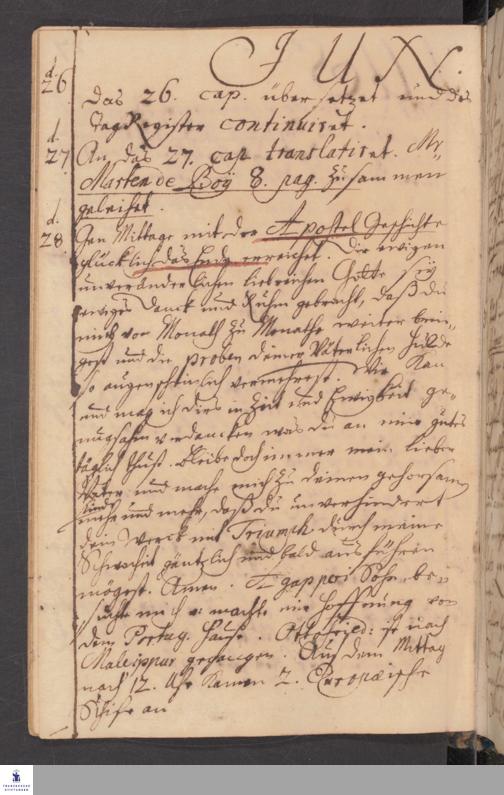 JUN.
d. 26
Das 26. cap. übersetzet und das
TagRegister continuiret.
d. 27
An das 27. cap translatiret. Mr
Marten de Boÿ 8. pag. zusammen
geleihet.
d. 28
Gen Mittage mit der Apostel Geschichte
glücklich das Ende erreichet. Dir ewigen
unveränderlichen liebreichen Gotte seÿ
ewiges Danck und Ruhm gebracht, daß du
mich von Monath zu Monathe weiter brin-
gest und die proben deiner Väterlichen Hülde
so augenscheinlich vermehrest. Wie kan
und mag ich dirs in Zeit und Ewigkeit ge-
nugsahm verdancken was du an mir gutes
täglich thust. Bleibe doch immer mein lieber
Vater und mache mich zu deinem gehorsam
Kinde
mehr und mehr, daß du unverhindert
dein Werck mit Triumph durch meine
Schwachheit gäntzlich und bald ausführen
mögest. Amen. Sohn be-
suchte mich u: machte mir Hoffnung von
dem Portug. Hause. ist nach
Maleippur gegangen. Auf dem Mittag
nach 12. Uhr kamen 2. Europæische
Schife an